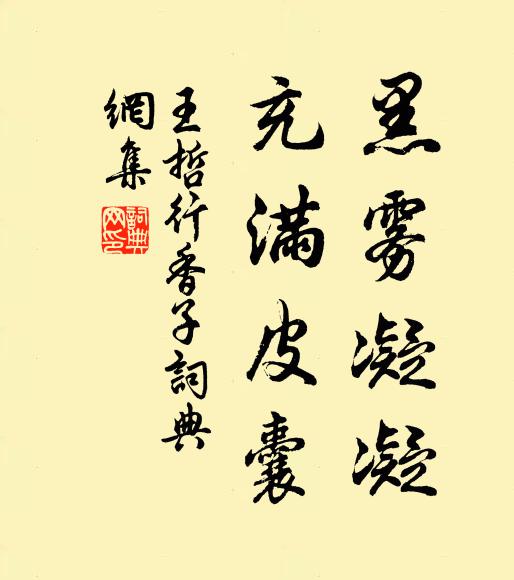 黑雾凝凝
充滿皮囊
王哲行香子詞典
網集
詞典
网印